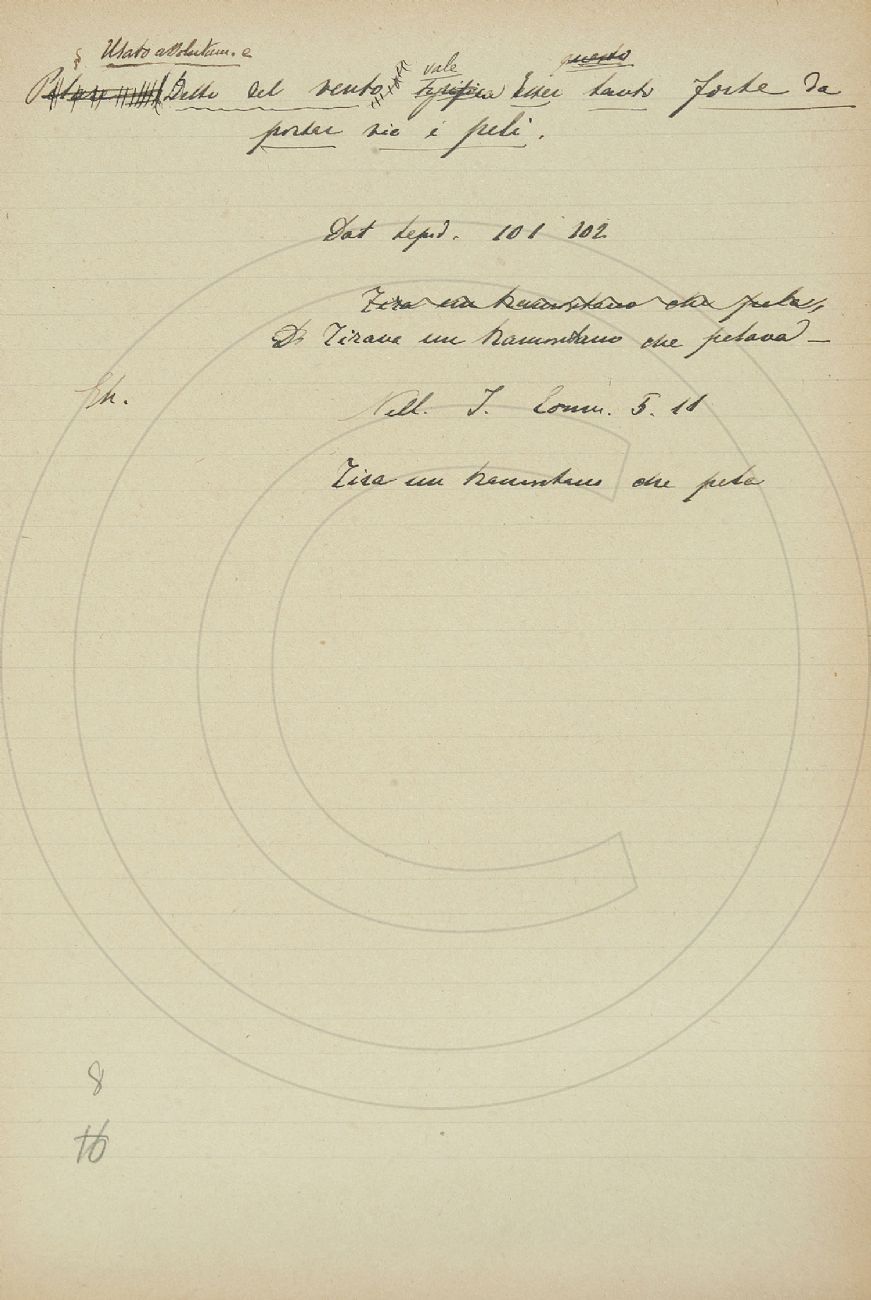 § Usato assolutam. e
vale questo
Pelare Detto del vento, significa Esser tanto forte da
portar via i peli.
Dat Lepid. 101 102
Tira un tramontano che pela,
D Tirava un tramontano che pelava —
Gh.
Nell. J. Comm. 5. 11
Tira un tramontano che pela
8
16